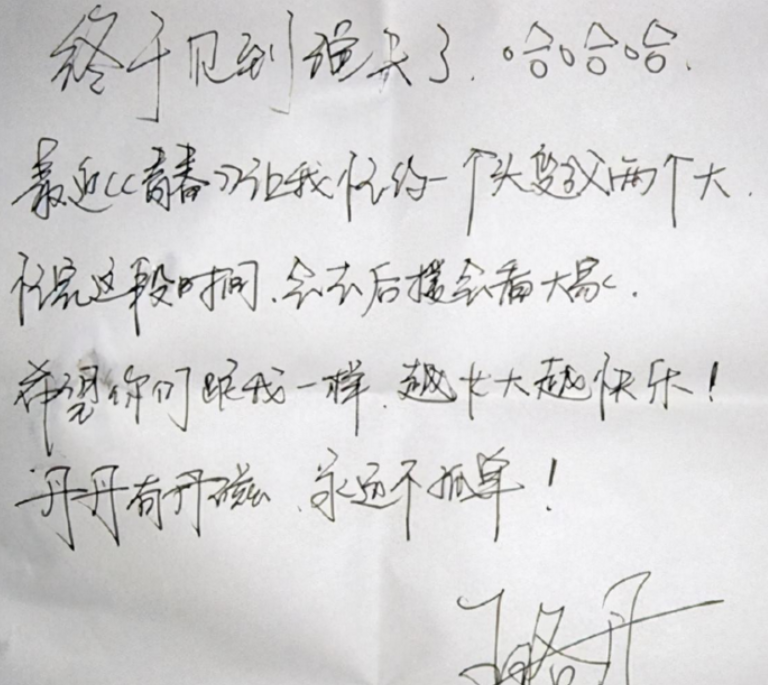 终于见到了.哈哈哈.
最近《青春》让我忙的一个头变成两个大.
忙完这段时间,会去后援会看大家.
希望你们跟我一样,越长大越快乐!
丹丹有丹磁,永远不孤单!
珞丹